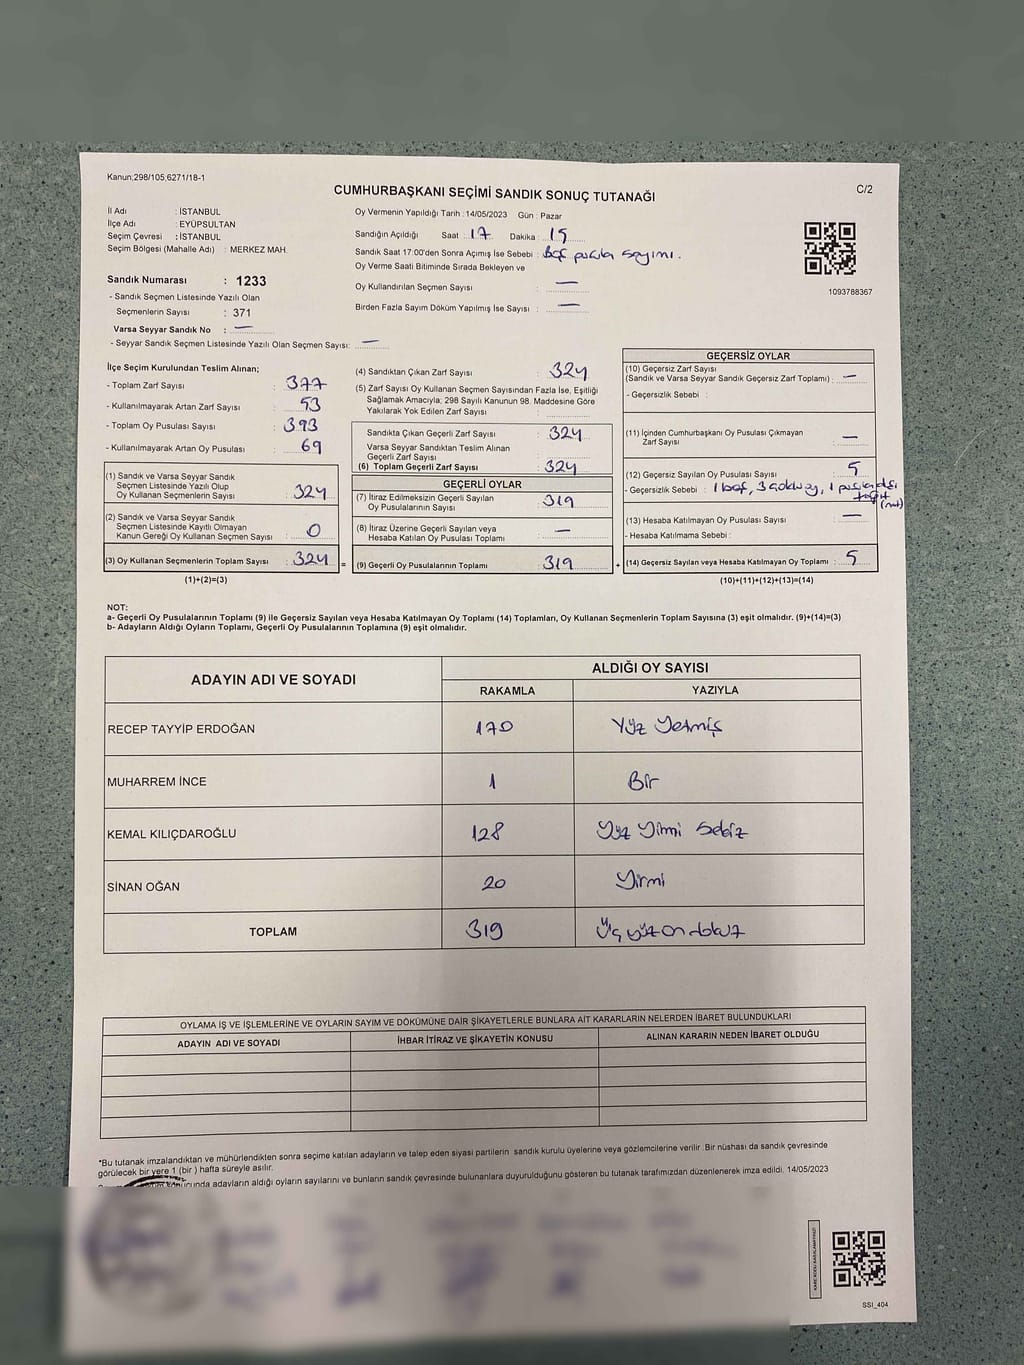 Kanun;298/105,6271/18-1
CUMHURBAŞKANI SEÇİMİ SANDIK SONUÇ TUTANAĞI
C/2
İl Adı : İSTANBUL
İlçe Adı : EYÜPSULTAN
Seçim Çevresi : İSTANBUL
Seçim Bölgesi (Mahalle Adı) : MERKEZ MAH.
Oy Vermenin Yapıldığı Tarih : 14/05/2023 Gün : Pazar
Sandığın Açıldığı Saat : 17 Dakika : 15
Sandık Saat 17:00'den Sonra Açımış İse Sebebi : Boş pusula sayımı.
Oy Verme Saati Bitiminde Sırada Bekleyen ve
Oy Kullandırılan Seçmen Sayısı : —
Birden Fazla Sayım Döküm Yapılmış İse Sayısı : —
1093788367
Sandık Numarası : 1233
- Sandık Seçmen Listesinde Yazılı Olan
Seçmenlerin Sayısı : 371
Varsa Seyyar Sandık No : —
- Seyyar Sandık Seçmen Listesinde Yazılı Olan Seçmen Sayısı: —
İlçe Seçim Kurulundan Teslim Alınan;
- Toplam Zarf Sayısı : 377
- Kullanılmayarak Artan Zarf Sayısı : 53
- Toplam Oy Pusulası Sayısı : 393
- Kullanılmayarak Artan Oy Pusulası : 69
(1) Sandık ve Varsa Seyyar Sandık
Seçmen Listesinde Yazılı Olup
Oy Kullanan Seçmenlerin Sayısı : 324
(2) Sandık ve Varsa Seyyar Sandık
Seçmen Listesinde Kayıtlı Olmayan
Kanun Gereği Oy Kullanan Seçmen Sayısı : 0
(3) Oy Kullanan Seçmenlerin Toplam Sayısı : 324
(1)+(2)=(3)
(4) Sandıktan Çıkan Zarf Sayısı : 324
(5) Zarf Sayısı Oy Kullanan Seçmen Sayısından Fazla İse, Eşitliği
Sağlamak Amacıyla; 298 Sayılı Kanunun 98. Maddesine Göre
Yakılarak Yok Edilen Zarf Sayısı :
Sandıkta Çıkan Geçerli Zarf Sayısı : 324
Varsa Seyyar Sandıktan Teslim Alınan
Geçerli Zarf Sayısı :
(6) Toplam Geçerli Zarf Sayısı : 324
GEÇERLİ OYLAR
(7) İtiraz Edilmeksizin Geçerli Sayılan
Oy Pusulalarının Sayısı : 319
(8) İtiraz Üzerine Geçerli Sayılan veya
Hesaba Katılan Oy Pusulası Toplamı : —
= (9) Geçerli Oy Pusulalarının Toplamı : 319
GEÇERSİZ OYLAR
(10) Geçersiz Zarf Sayısı
(Sandık ve Varsa Seyyar Sandık Geçersiz Zarf Toplamı) : —
- Geçersizlik Sebebi :
(11) İçinden Cumhurbaşkanı Oy Pusulası Çıkmayan
Zarf Sayısı : —
(12) Geçersiz Sayılan Oy Pusulası Sayısı : 5
- Geçersizlik Sebebi : 1 boş, 3 çoklu oy, 1
(13) Hesaba Katılmayan Oy Pusulası Sayısı : —
- Hesaba Katılmama Sebebi :
+ (14) Geçersiz Sayılan veya Hesaba Katılmayan Oy Toplamı : 5
(10)+(11)+(12)+(13)=(14)
NOT:
a- Geçerli Oy Pusulalarının Toplamı (9) ile Geçersiz Sayılan veya Hesaba Katılmayan Oy Toplamı (14) Toplamları, Oy Kullanan Seçmenlerin Toplam Sayısına (3) eşit olmalıdır. (9)+(14)=(3)
b- Adayların Aldığı Oyların Toplamı, Geçerli Oy Pusulalarının Toplamına (9) eşit olmalıdır.
ADAYIN ADI VE SOYADI
ALDIĞI OY SAYISI
RAKAMLA YAZIYLA
RECEP TAYYİP ERDOĞAN 170 Yüz Yetmiş
MUHARREM İNCE 1 Bir
KEMAL KILIÇDAROĞLU 128 Yüz Yirmi Sekiz
SİNAN OĞAN 20 Yirmi
TOPLAM 319 Üç yüz on dokuz
OYLAMA İŞ VE İŞLEMLERİNE VE OYLARIN SAYIM VE DÖKÜMÜNE DAİR ŞİKAYETLERLE BUNLARA AİT KARARLARIN NELERDEN İBARET BULUNDUKLARI
ADAYIN ADI VE SOYADI İHBAR İTİRAZ VE ŞİKAYETİN KONUSU ALINAN KARARIN NEDEN İBARET OLDUĞU
*Bu tutanak imzalandıktan ve mühürlendikten sonra seçime katılan adayların ve talep eden siyasi partilerin sandık kurulu üyelerine veya gözlemcilerine verilir .Bir nüshası da sandık çevresinde
görülecek bir yere 1 (bir ) hafta süreyle asılır.
adayların aldığı oyların sayılarını ve bunların sandık çevresinde bulunanlara duyurulduğunu gösteren bu tutanak tarafımızdan düzenlenerek imza edildi. 14/05/2023
SSI_404